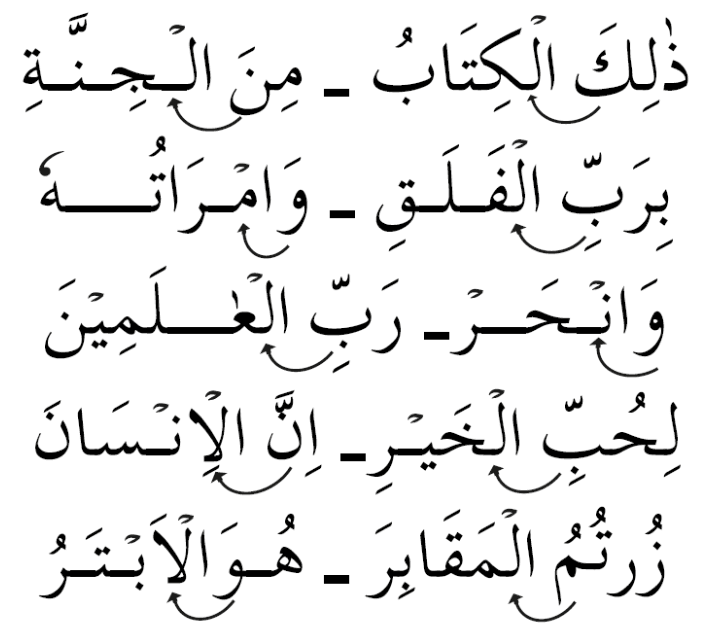 ذٰلِكَ الْكِتَابُ - مِنَ الْجِنَّةِ
بِرَبِّ الْفَلَقِ - وَامْرَاَتُهٗ
وَانْحَرْ - رَبِّ الْعٰلَمِيْنَ
لِحُبِّ الْخَيْرِ - اِنَّ الْاِنْسَانَ
زُرتُمُ الْمَقَابِرَ - هُوَ الْاَبْتَرُ